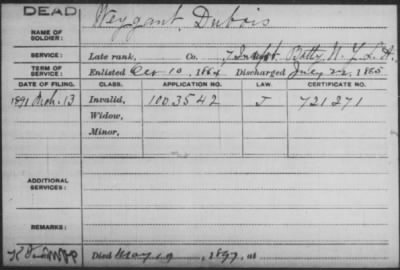 DEAD
Weygant, Dubois
NAME OF SOLDIER:
SERVICE: Late rank, Co. 7 Indpt. Batty. N.Y.L.A.
TERM OF SERVICE: Enlisted Oct 10, 1864 Discharged July 22, 1865
DATE OF FILING. CLASS. APPLICATION NO. LAW. CERTIFICATE NO.
1891 Mch. 13 Invalid, 1003542 J 721271
Widow,
Minor,
ADDITIONAL SERVICES:
REMARKS:
Died May 19, 1897, at